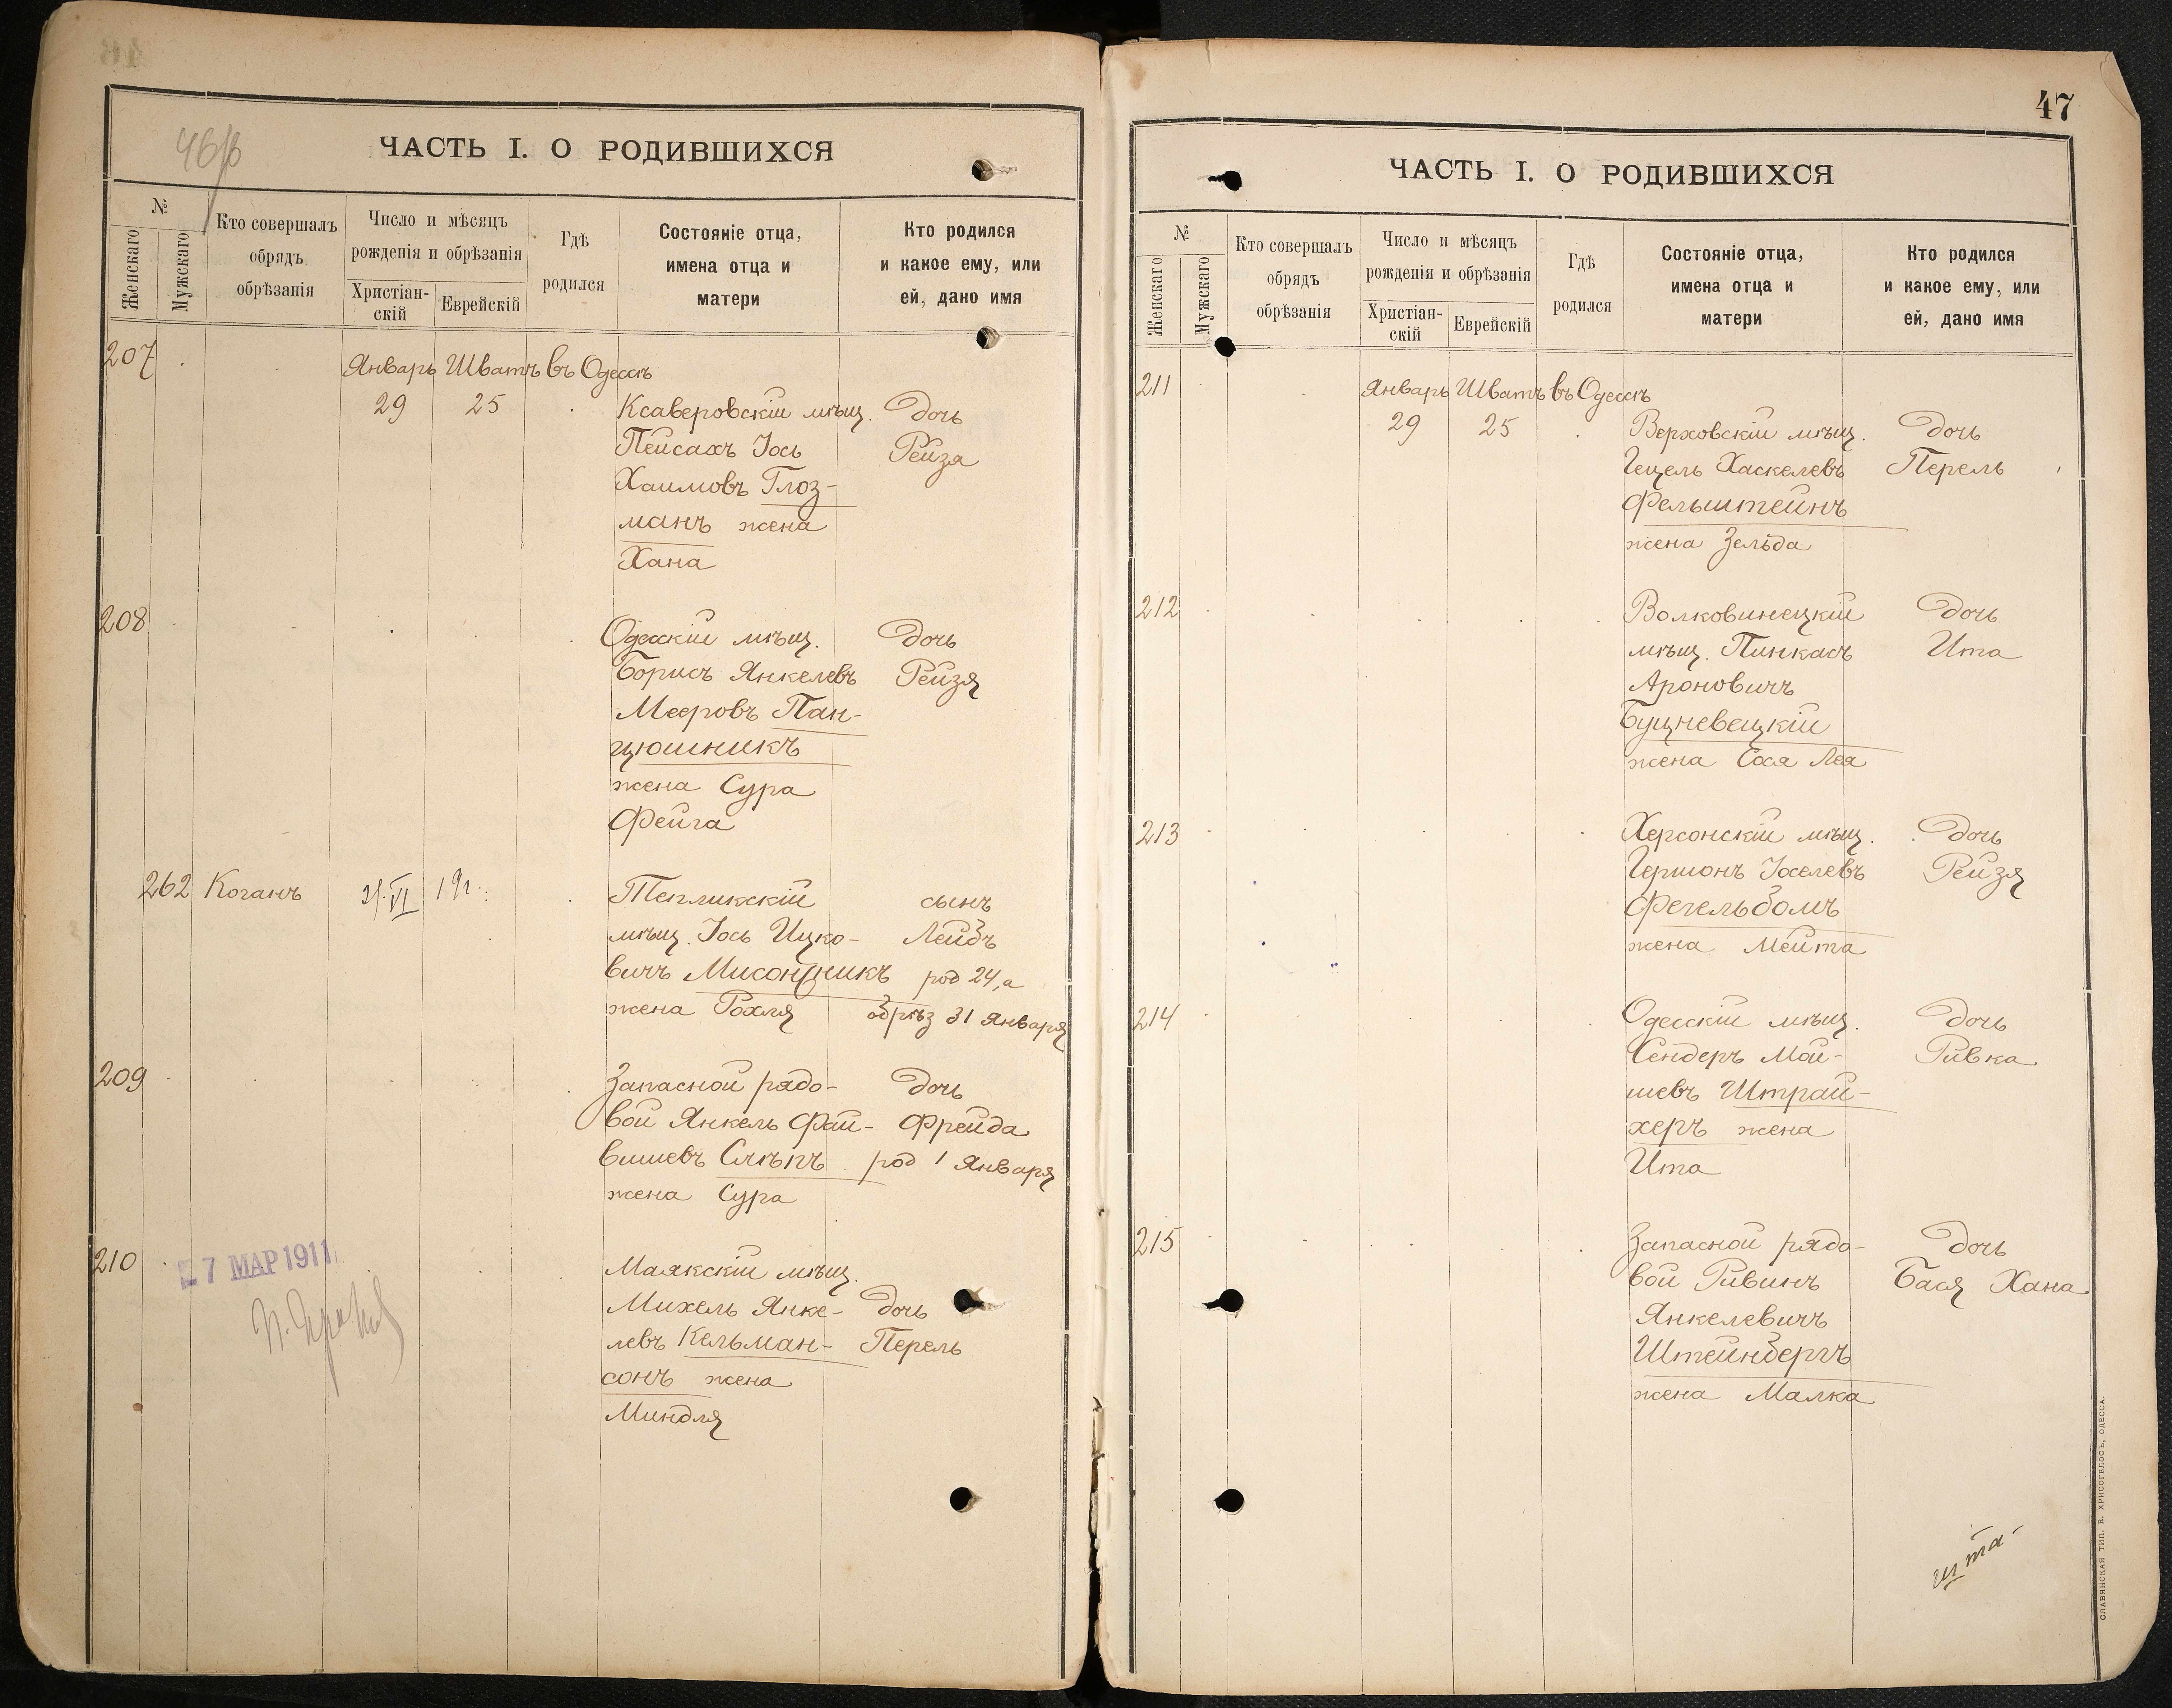 46/в
ЧАСТЬ I. О РОДИВШИХСЯ
№
Женскаго
Мужскаго
Кто совершалъ
обрядъ
обрѣзанія
Число и мѣсяцъ
рожденія и обрѣзанія
Христіан-
скій
Еврейскій
Гдѣ
родился
Состояніе отца,
имена отца и
матери
Кто родился
и какое ему, или
ей, дано имя
207
Январь Шватъ въ Одессѣ
29 25 Ксаверовскій мѣщ. дочь
Пейсахъ Іось Рейзя
Хаимовъ Глоз-
манъ жена
Хана
208
Одесскій мѣщ. дочь
Борисъ Янкелевъ Рейзя
Мееровъ Пан-
цюшникъ
жена Сура
Фейга
262 Коганъ Тепликскій сынъ
мѣщ. Іось Ицко- Лейбъ
вичъ Мисонжникъ род 24, а
жена Рохля обрѣз 31 Января
209
Запасной рядо- дочь
вой Янкель Фай- Фрейда
вишевъ Слѣпъ род 1 Января
жена Сура
210
7 МАР 1911
Маякскій мѣщ.
Михель Янке- дочь
левъ Кельман- Перель
сонъ жена
Миндля
47
ЧАСТЬ I. О РОДИВШИХСЯ
№
Женскаго
Мужскаго
Кто совершалъ
обрядъ
обрѣзанія
Число и мѣсяцъ
рожденія и обрѣзанія
Христіан-
скій
Еврейскій
Гдѣ
родился
Состояніе отца,
имена отца и
матери
Кто родился
и какое ему, или
ей, дано имя
211
Январь Шватъ въ Одессѣ
29 25 Верховскій мѣщ. дочь
Гецель Хаскелевъ Перель
Фельштейнъ
жена Зельда
212 Волковинецкій дочь
мѣщ. Пинкасъ Ита
Ароновичъ
Буцневецкій
жена Сося Лея
213 Херсонскій мѣщ. дочь
Гершонъ Іоселевъ Рейзя
Фегельбомъ
жена Мейта
214 Одесскій мѣщ. дочь
Сендеръ Мой- Ривка
шевъ Штрай-
херъ жена
Ита
215 Запасной рядо- дочь
вой Ривинъ Бася Хана
Янкелевичъ
Штейнбергъ
жена Малка
СЛАВЯНСКАЯ ТИП. Е. ХРИСОГЕЛОСЪ, ОДЕССА.